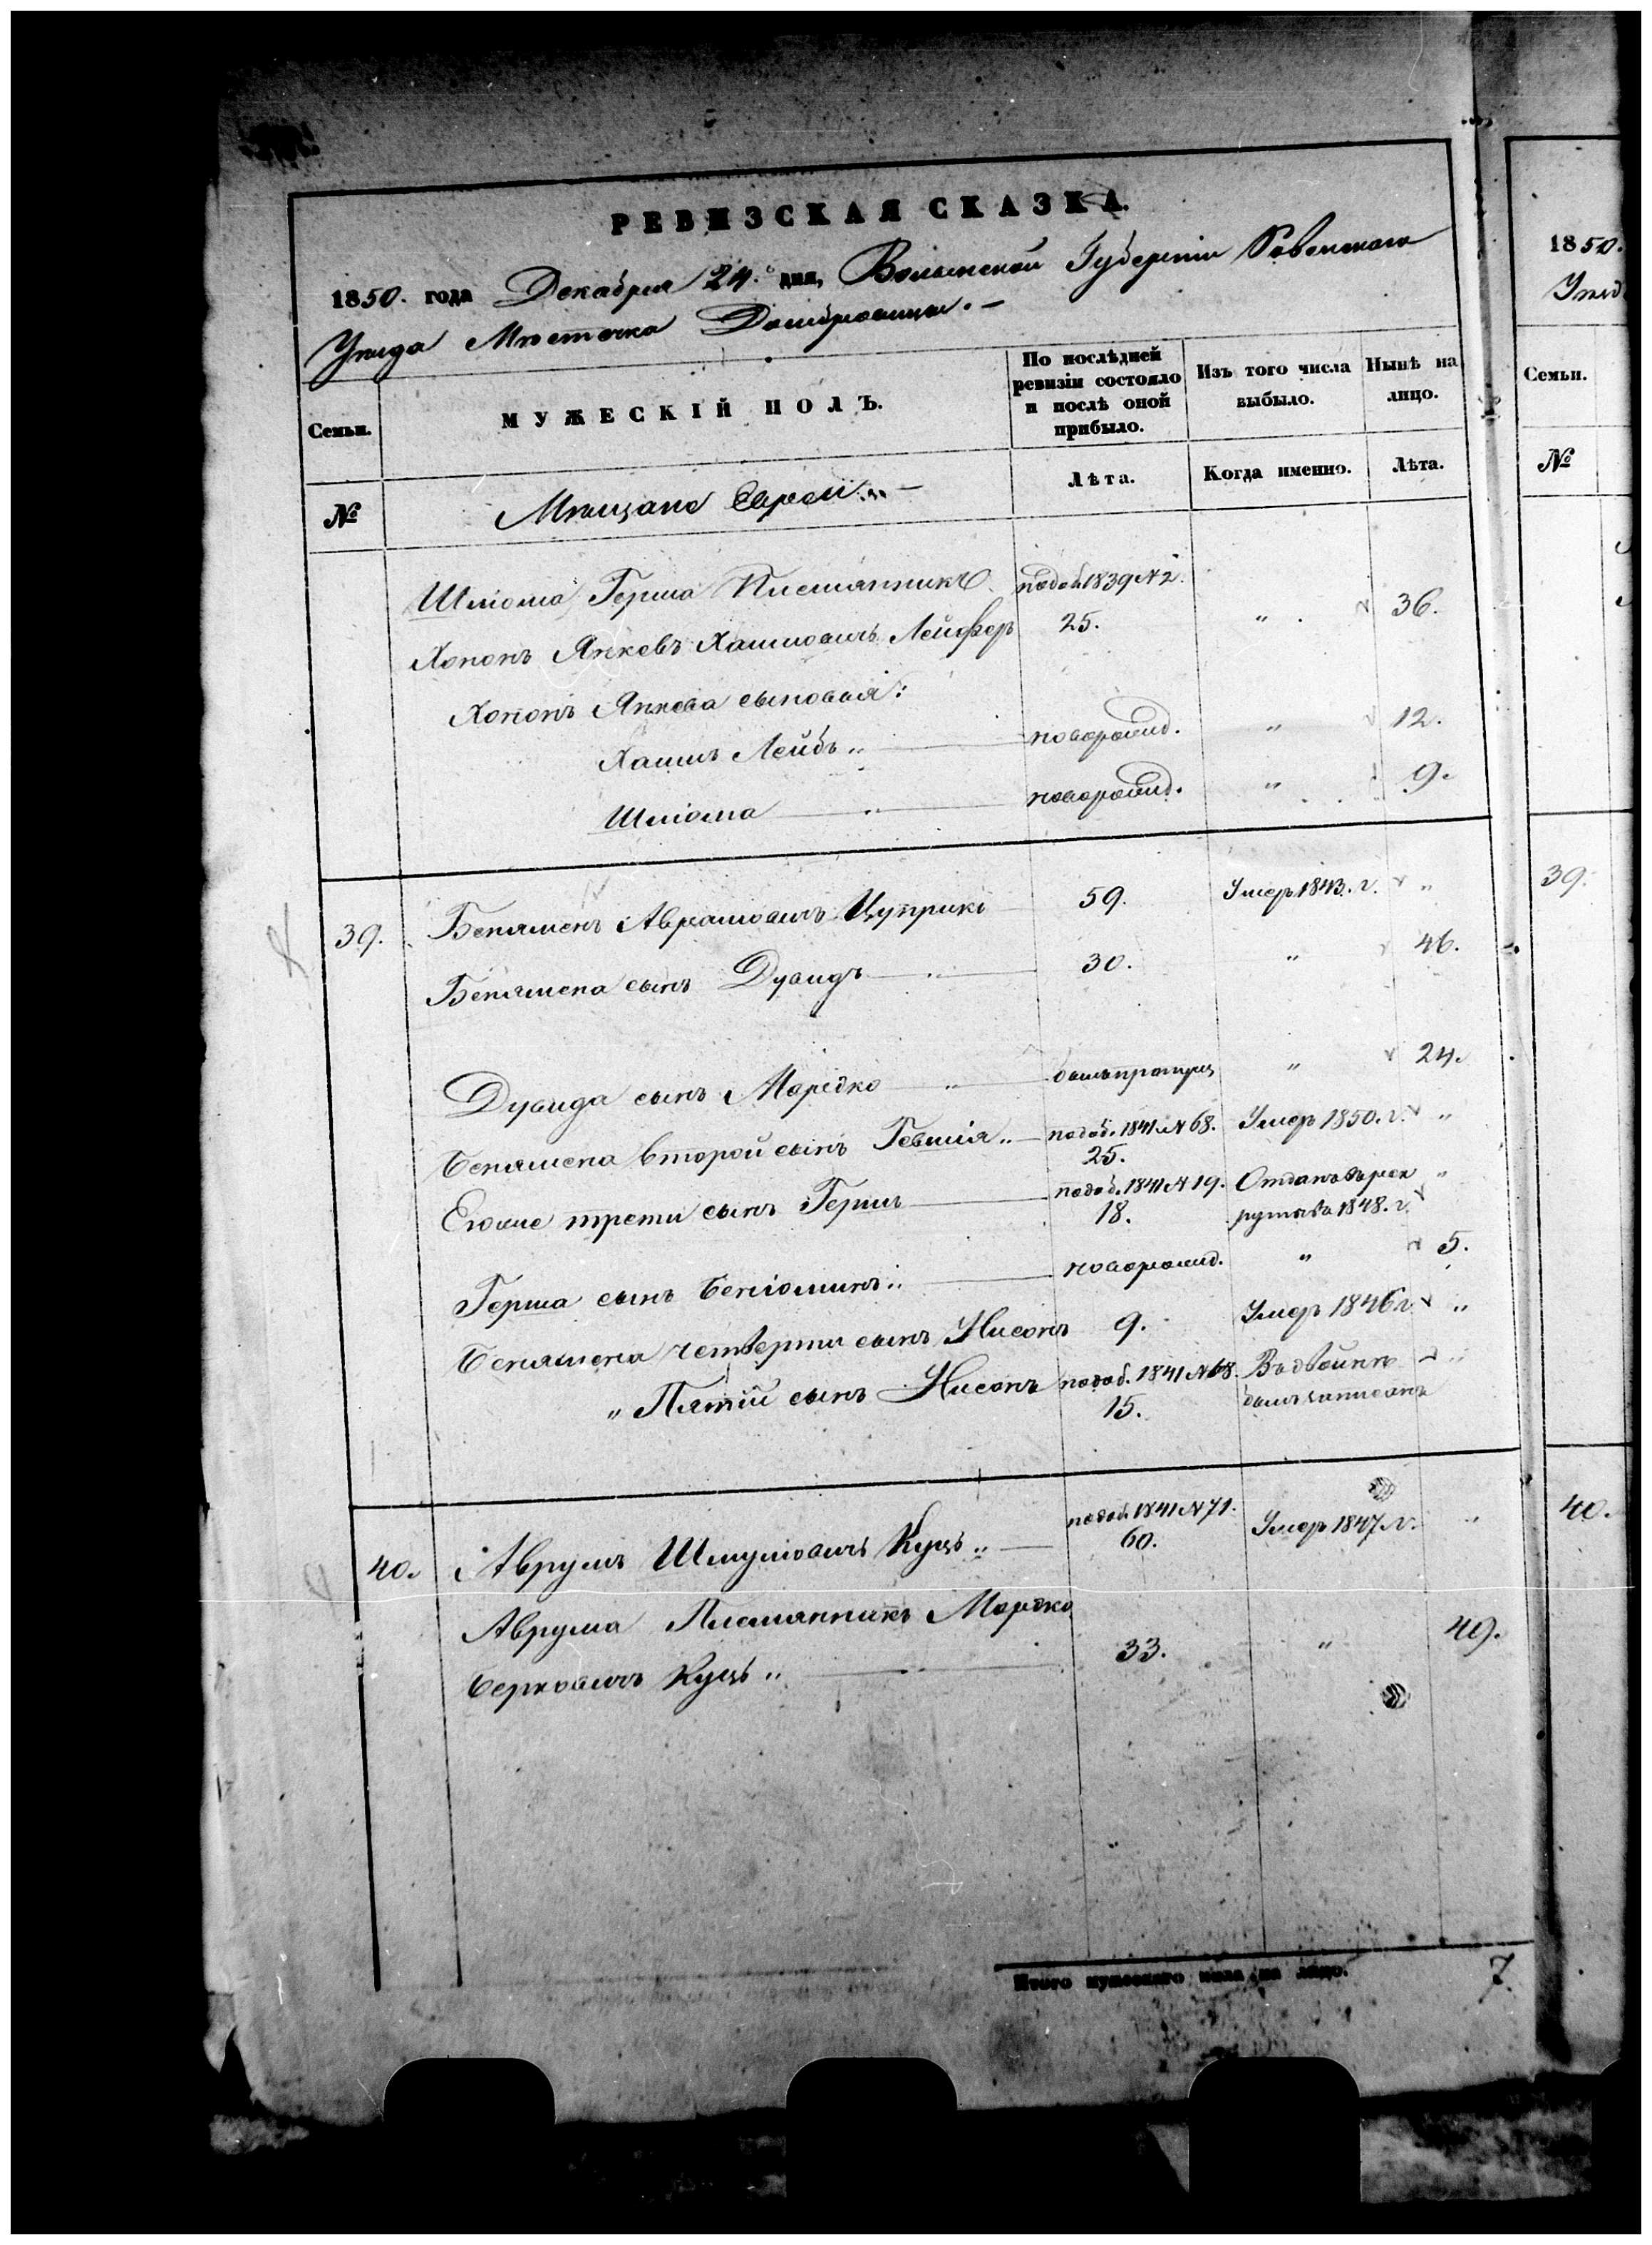 РЕВИЗСКАЯ СКАЗКА.
1850. года Декабря 24.º дня, Волынской Губерніи Ровенскаго
Уѣзда Мѣстечка Домбровица. –
Семьи.
МУЖЕСКІЙ ПОЛЪ.
По послѣдней ревизіи состояло и послѣ оной прибыло.
Изъ того числа выбыло.
Нынѣ на лицо.
№
Мѣщане Евреи
Лѣта.
Когда именно.
Лѣта.
Шліома Герша Племянникъ 1839 № 2.
Хононъ Янкевъ Хаимовичъ Лейфер 25. " 36.
Хононъ Янкева сыновья:
Хаимъ Лейбъ новорожд. " 12.
Шліома новорожд. " 9.
39. Бенямен Аврамовичъ Цуприкъ 59. Умеръ 1843. г. "
Бенямена сынъ Дувидъ 30. " 46.
Дувида сынъ Мордко былъ пропущ " 24.
Бенямена второй сынъ подоб. 1841 № 68. 25. Умеръ 1850. г. "
Егоже трети сынъ Герш подоб. 1841 № 19. 18. Отданъ въ рек
руты въ 1848. г. "
Герша сынъ Бенiоминъ новорожд. " 5.
Бенямена четверти сынъ Нисонъ 9. Умеръ 1846 г. "
" Пятiй сынъ Нисонъ подоб. 1841 № 68. 15. Въ двойнѣ
былъ записанъ "
40. Аврумъ Шмулiовичъ Куцъ подоб. 1841 № 71. 60. Умеръ 1847 г. "
Аврума Племянникъ Мордко
Берковичъ Куцъ 33. " 49.
Итого мужескаго пола на лицо. 7.
1850.
Уѣзд
Семьи.
№
39.
40.